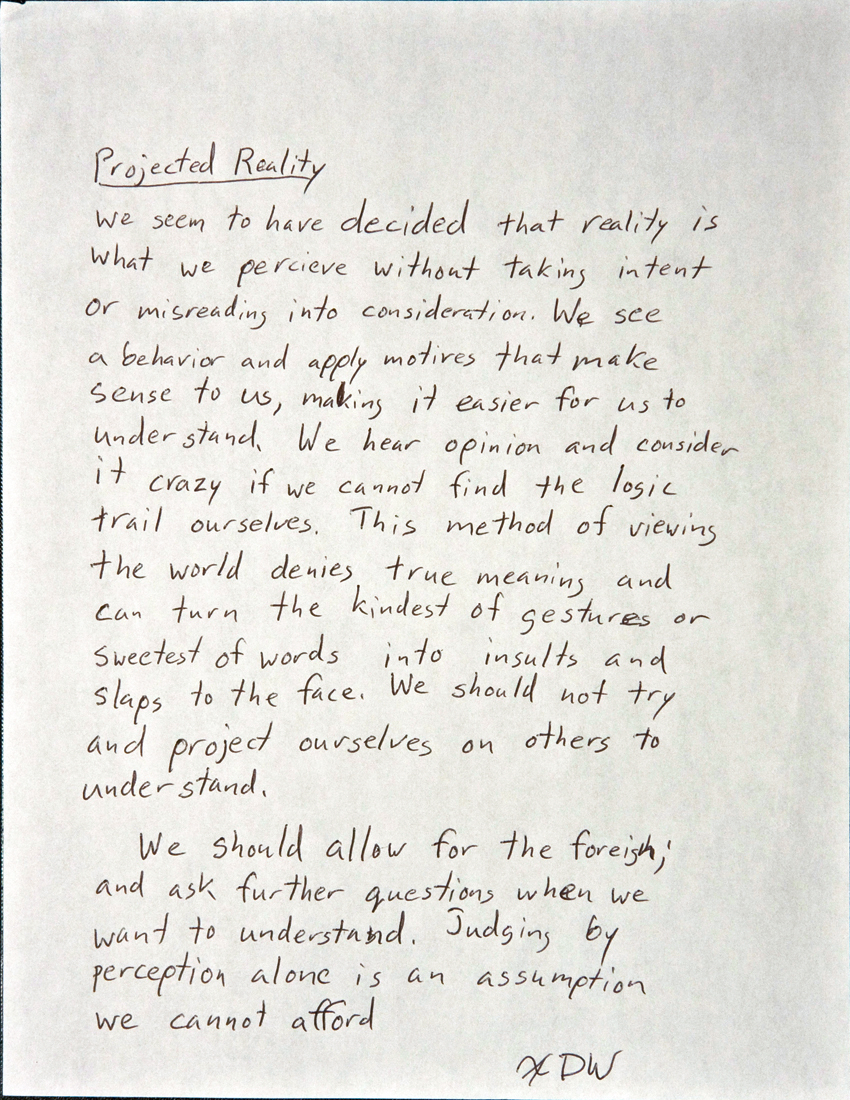 Projected Reality
We seem to have decided that reality is
what we percieve without taking intent
or misreading into consideration. We see
a behavior and apply motives that make
sense to us, making it easier for us to
understand. We hear opinion and consider
it crazy if we cannot find the logic
trail ourselves. This method of viewing
the world denies true meaning and
can turn the kindest of gestures or
sweetest of words into insults and
slaps to the face. We should not try
and project ourselves on others to
understand.
We should allow for the foreign;
and ask further questions when we
want to understand. Judging by
perception alone is an assumption
we cannot afford
XDW